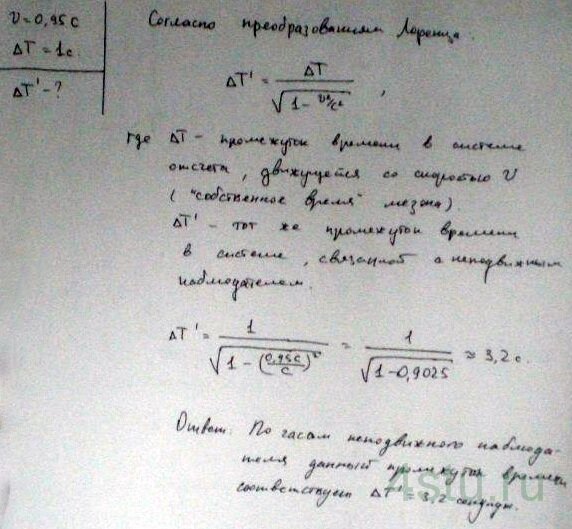 υ = 0,95 c
ΔT = 1 c.
ΔT' - ?
Согласно преобразованиям Лоренца.
ΔT' = ΔT / √(1 - υ²/c²) ,
где ΔT - промежуток времени в системе
отсчета, движущейся со скоростью υ
( "собственное время" мезона)
ΔT' - тот же промежуток времени
в системе, связанной с неподвижным
наблюдателем.
ΔT' = 1 / √(1 - (0,95c/c)²) = 1 / √(1-0,9025) ≈ 3,2 c.
Ответ: По часам неподвижного наблюда-
теля данный промежуток времени
соответствует ΔT' 3,2 секунды.
4stu.ru